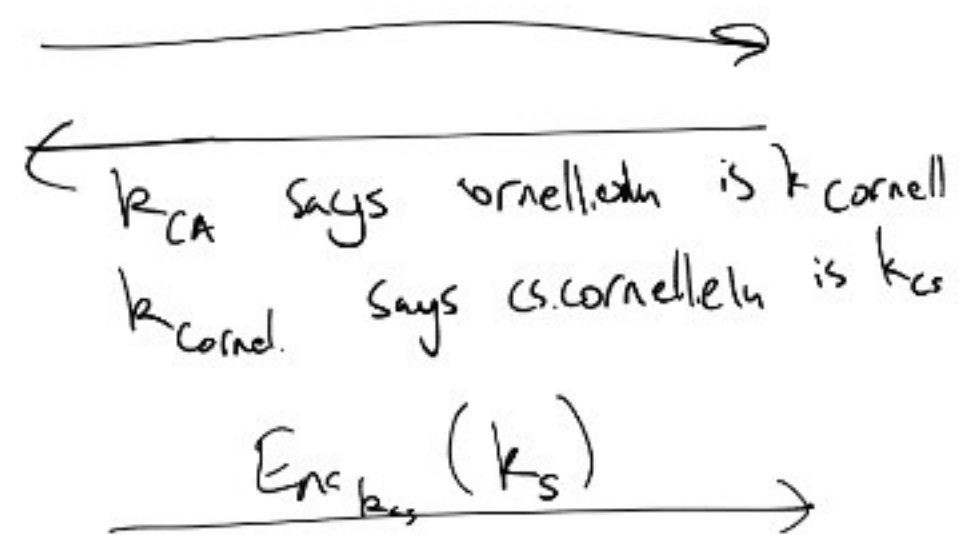 k_CA says ornell.edu is k_cornell
k_Cornel. says cs.cornell.edu is k_cs
Enc_k_cs (k_s)